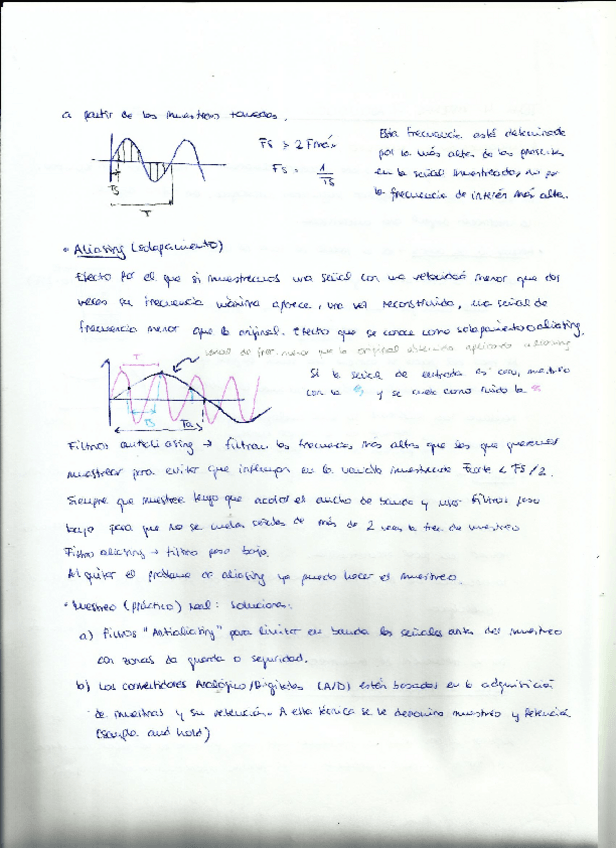 a partir de las muestras tomadas.
Fs > 2 Fmáx
Fs = 1/Ts
Esta frecuencia está determinada
por la más alta de las presentes
en la señal muestreada, no por
la frecuencia de interés más alta.
Ts
T
• Aliasing (solapamiento)
Efecto por el que si muestreamos una señal con una velocidad menor que dos
veces su frecuencia máxima aparece, una vez reconstruida, una señal de
frecuencia menor que la original. Efecto que se conoce como solapamiento o aliasing.
señal de frec. menor que la original obtenida aplicando aliasing
T
Ts
Ta
Si la señal de entrada es
con la y se cuela como ruido la
Filtros antialiasing → filtran las frecuencias más altas que las que queremos
muestrear para evitar que influyan en la variable muestreada Fcorte < Fs/2.
Siempre que muestree tengo que acotar el ancho de banda y usar filtros paso
bajo para que no se cuelen señales de más de 2 veces la frec. de muestreo
Filtro aliasing → filtro paso bajo.
Al quitar el problema de aliasing ya puedo hacer el muestreo.
• Muestreo (práctico) real: soluciones:
a) Filtros "Antialiasing" para limitar en banda las señales antes del muestreo
con zonas de guarda o seguridad.
b) Los convertidores Analógico/Digitales (A/D) están basados en la adquisición
de muestras y su retención. A esta técnica se le denomina muestreo y Retención
(Sample and hold)